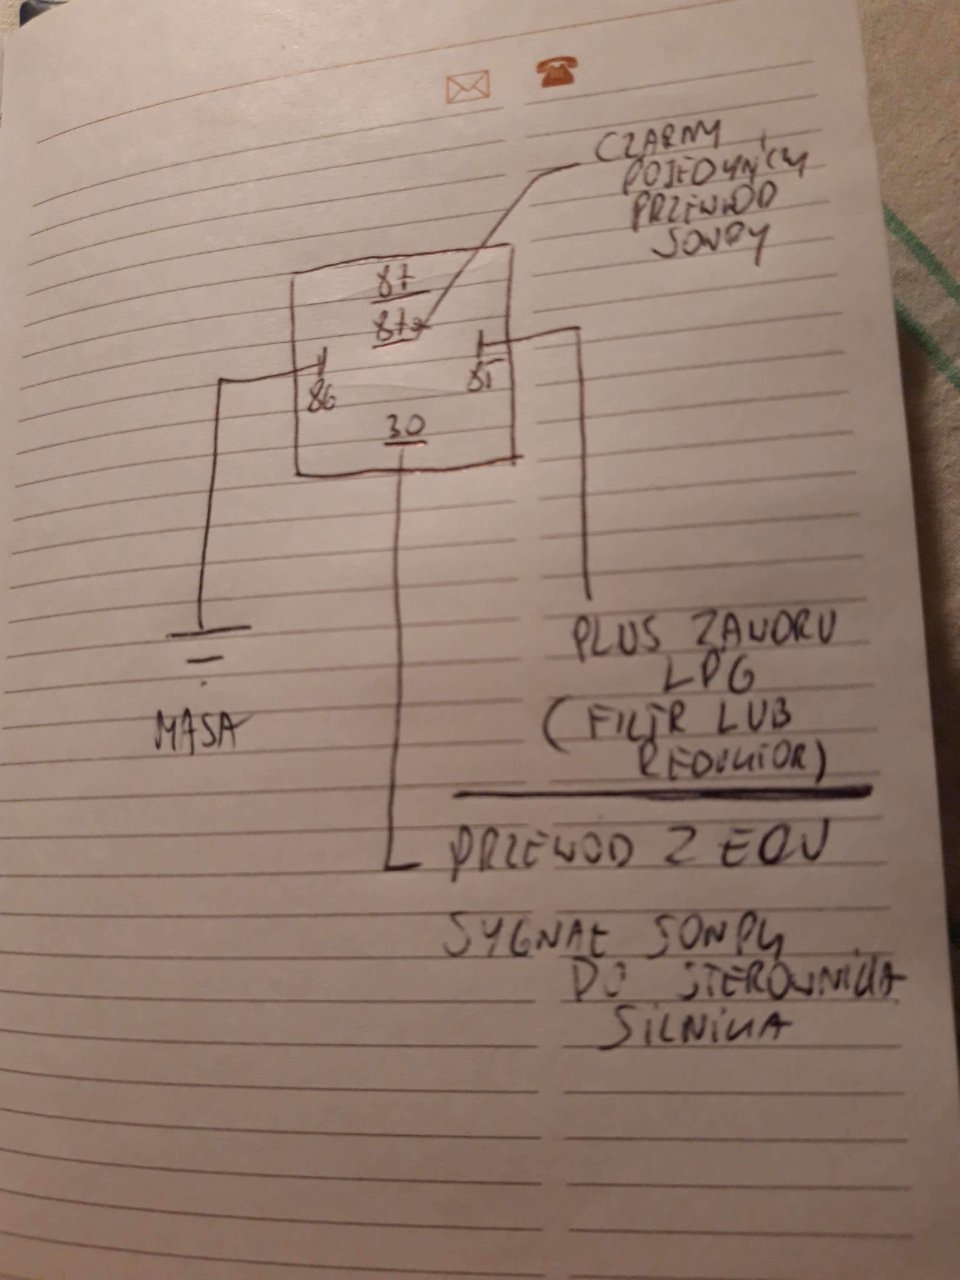 CZARNY
POJEDYNCZY
PRZEWOD
SONDY
87
87a
86
85
30
MASA
PLUS ZAWORU
LPG
(FILTR LUB
REDUKTOR)
PRZEWOD Z EQU
SYGNAŁ SONDY
DO STEROWNIKA
SILNIKA